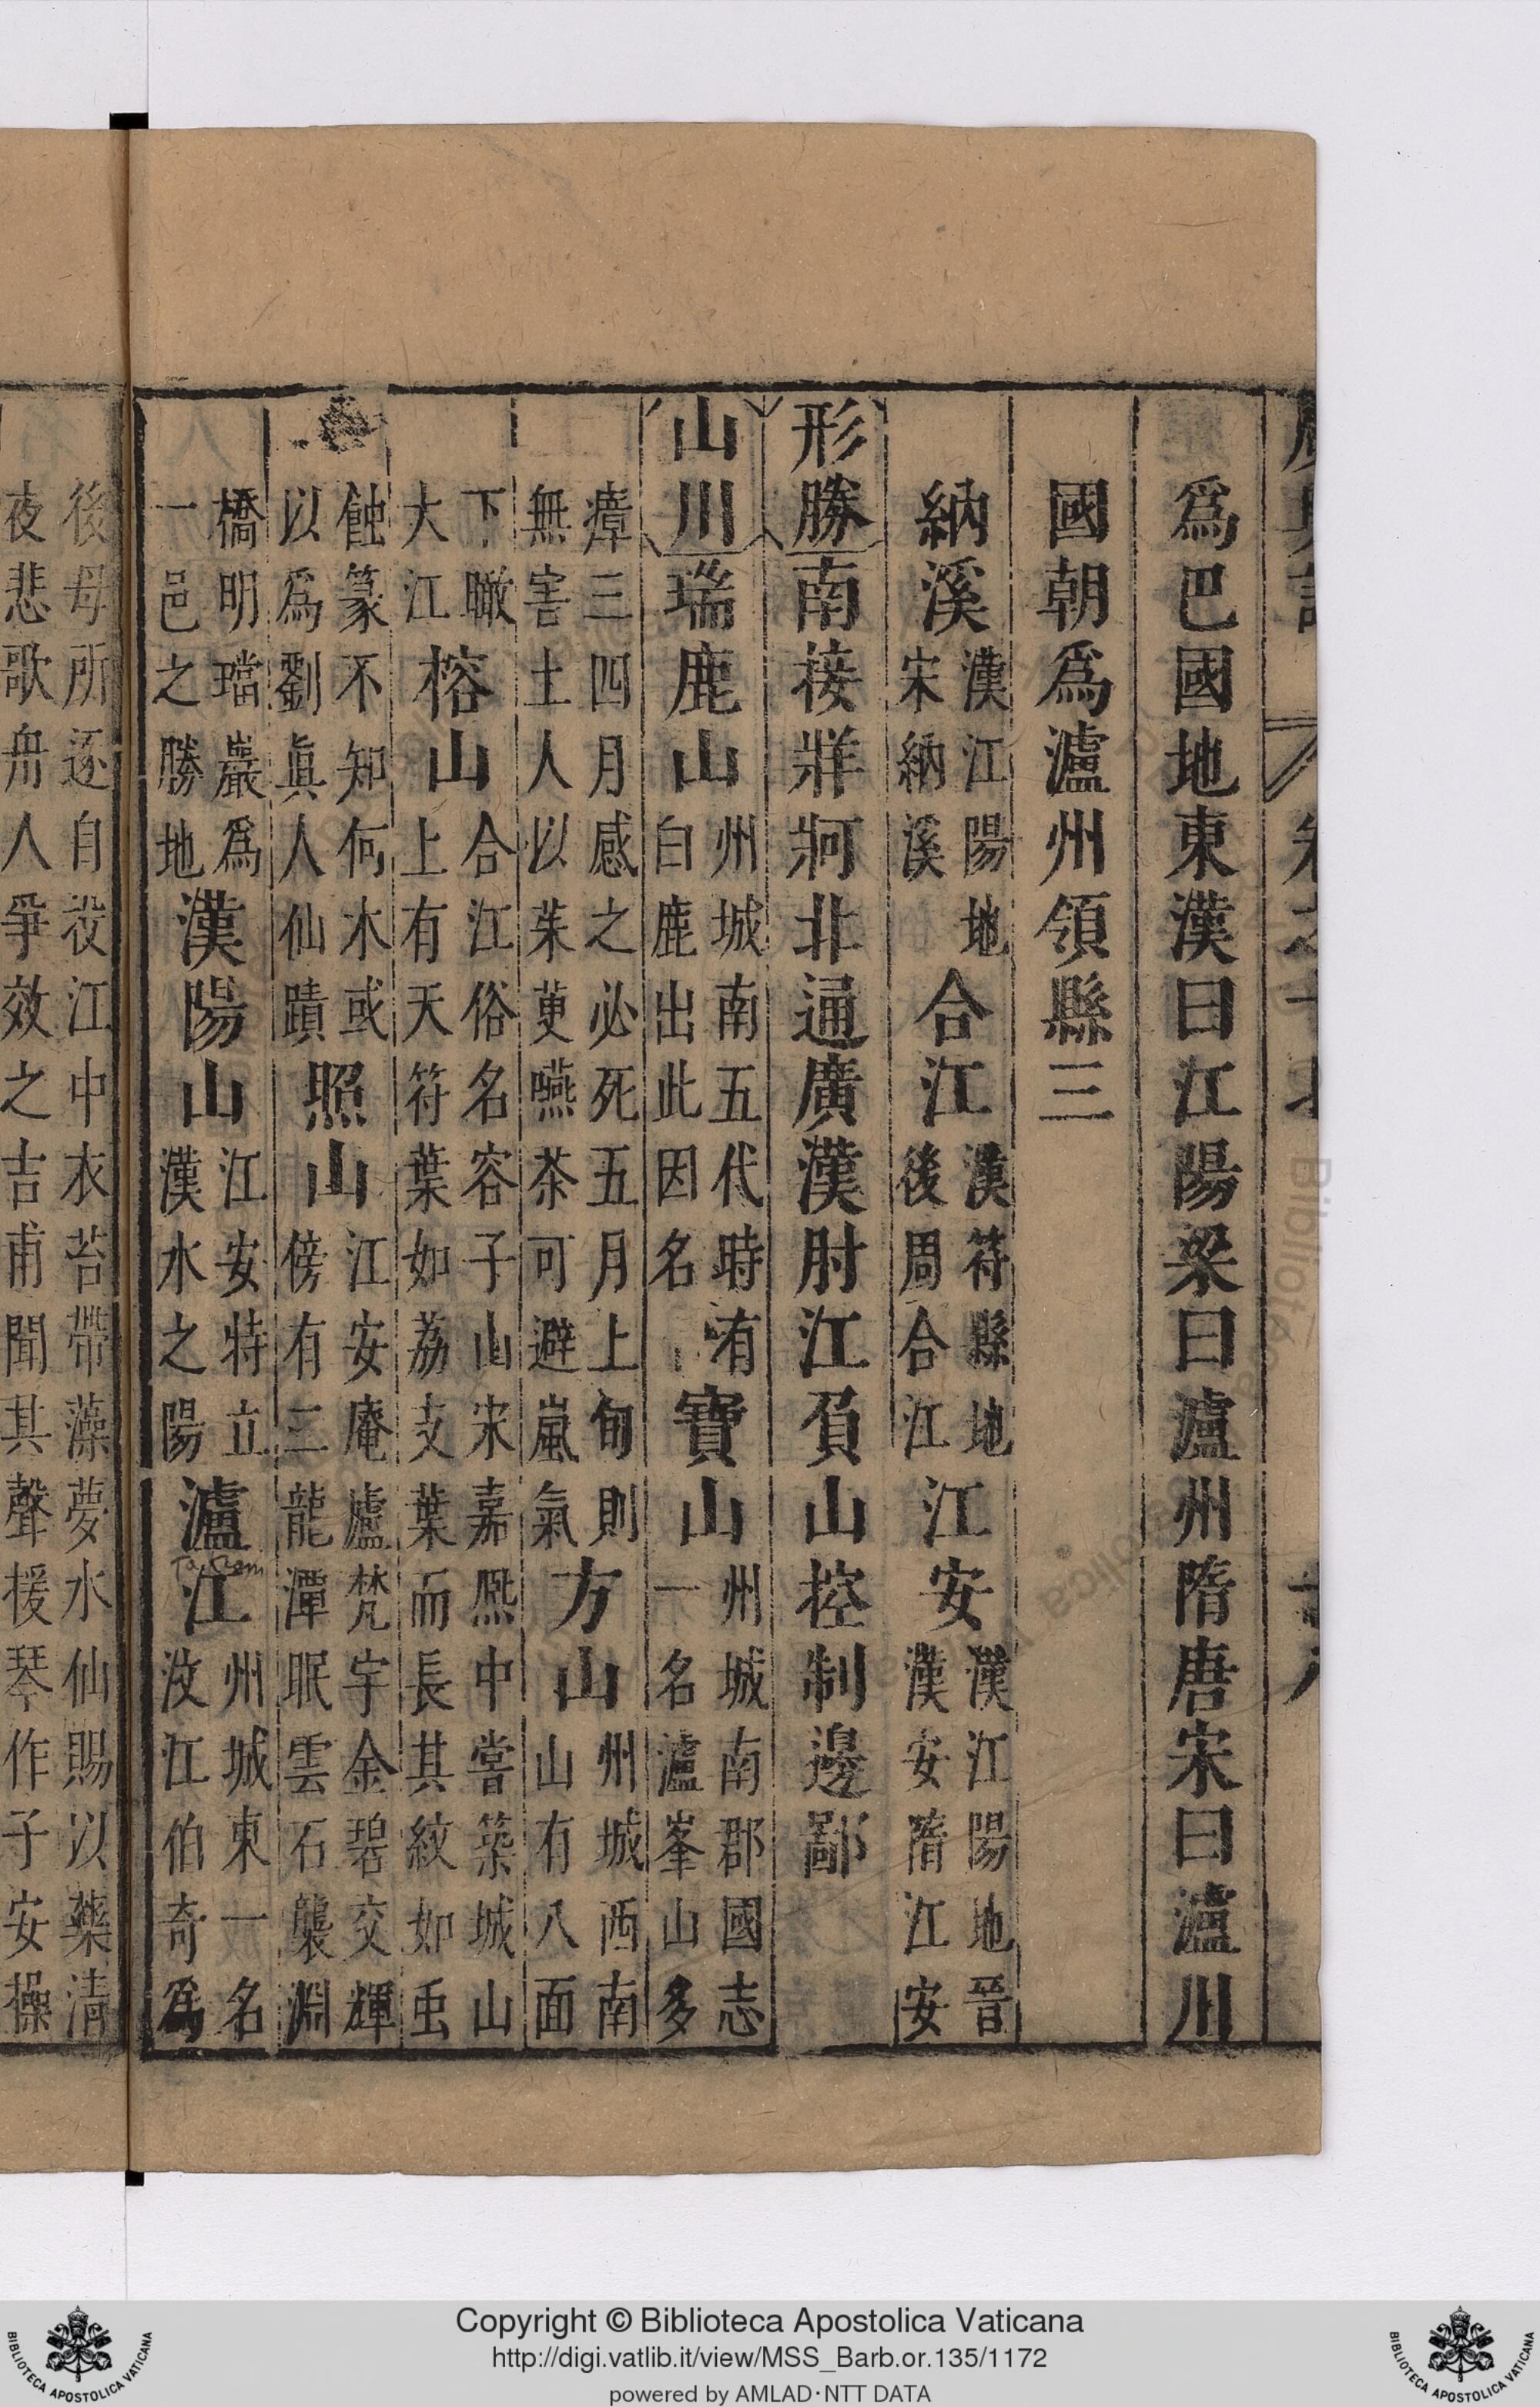 爲巴國地東漢曰江陽梁曰瀘州隋唐宋曰瀘川
國朝爲瀘州領縣三
納溪漢江陽地宋納溪合江漢符縣地後周合江江安漢江陽地晉漢安隋江安
形勝南接牂牁北通廣漢肘江負山控制邊鄙
山川瑞鹿山州城南五代時有白鹿出此因名寶山州城南郡國志一名瀘峯山多
瘴三四月感之必死五月上旬則無害土人以茱萸嚥茶可避嵐氣方山州城西南山有八面
下瞰大江榕山合江俗名容子山宋嘉熙中嘗築城山上有天符葉如荔支葉而長其紋如虫
蝕篆不知何木或以爲劉眞人仙蹟照山江安庵廬梵宇金碧交輝傍有二龍潭眠雲石襲淵
橋明璫巖爲一邑之勝地漢陽山江安特立漢水之陽瀘江州城東一名汶江伯奇爲
後母所逐自投江中衣苔帶藻夢水仙賜以藥清
夜悲歌舟人爭效之吉甫聞其聲援琴作子安操
Copyright © Biblioteca Apostolica Vaticana
http://digi.vatlib.it/view/MSS_Barb.or.135/1172
powered by AMLAD·NTT DATA
BIBLIOTECA APOSTOLICA VATICANA
BIBLIOTECA APOSTOLICA VATICANA